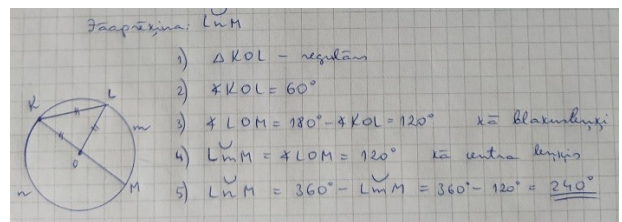 Jāaprēķina: L͝nM
1) △KOL – regulārs
2) ∢KOL = 60°
3) ∢LOM = 180° - ∢KOL = 120° kā blakusleņķi
4) L͝mM = ∢LOM = 120° kā centra leņķis
5) L͝nM = 360° - L͝mM = 360° - 120° = 240°
K
L
m
O
M
n